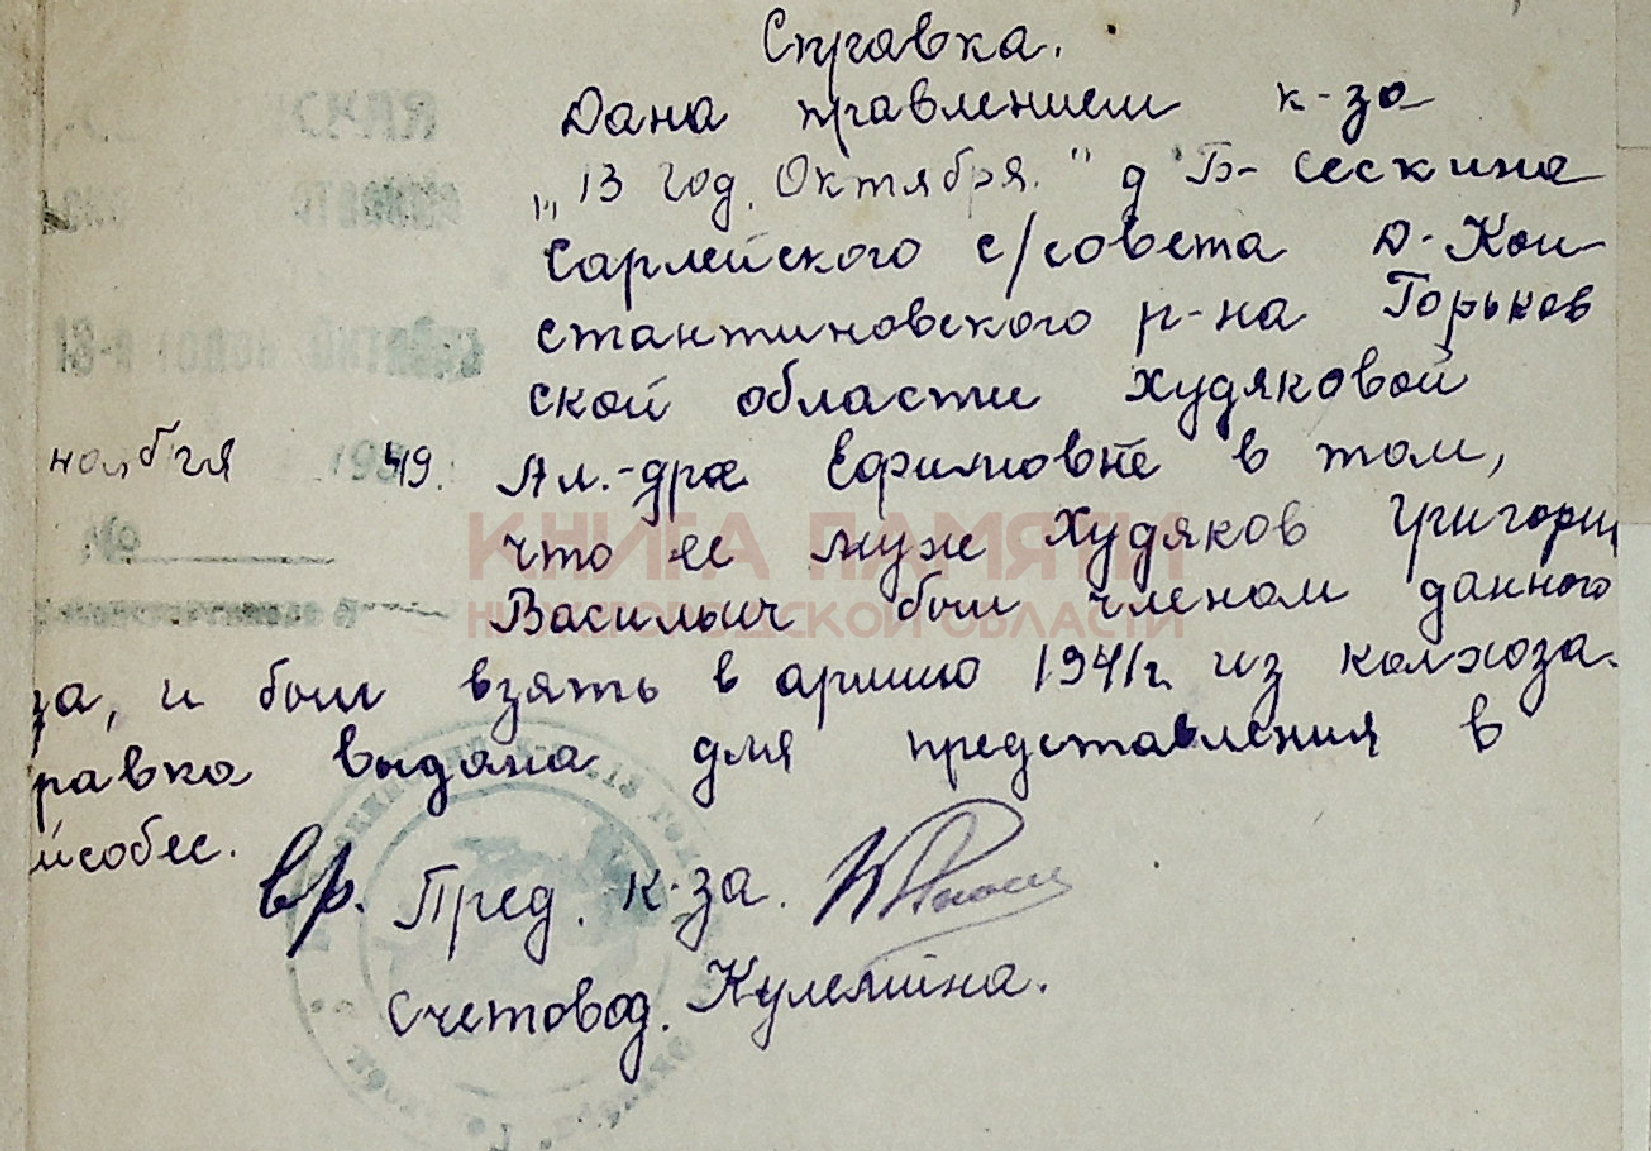 Справка.
Дана правлением к-за
"13 год. Октября." д Б- Сескина
Сарлейского с/совета Д-Кон
стантиновского р-на Горьков
ской области Худяковой
ноября 49. Ал.-дре Ефимовне в том,
что ее муж Худяков Григори
Васильич был членом данного
за, и был взять в армию 1941г. из колхоза.
равка выдана для представления в
йсобес.
вр. Пред. к-за.
Счетовод. Кулемина.
КНИГА ПАМЯТИ
НИЖЕГОРОДСКОЙ ОБЛАСТИ